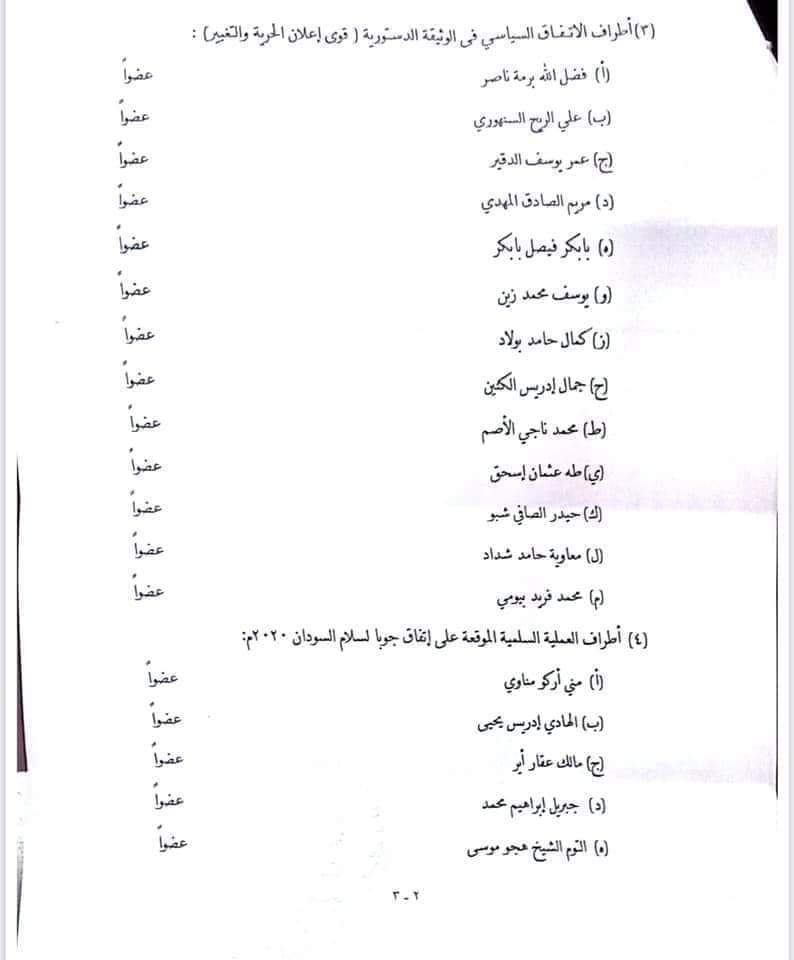 (٣) أطراف الاتفاق السياسي في الوثيقة الدستورية ( قوى إعلان الحرية والتغيير) :
(أ) فضل الله برمة ناصر عضواً
(ب) علي الريح السنهوري عضواً
(ج) عمر يوسف الدقير عضواً
(د) مريم الصادق المهدي عضواً
(ه) بابكر فيصل بابكر عضواً
(و) يوسف محمد زين عضواً
(ز) كمال حامد بولاد عضواً
(ح) جمال إدريس الكنين عضواً
(ط) محمد ناجي الأصم عضواً
(ي) طه عثمان إسحق عضواً
(ك) حيدر الصافي شبو عضواً
(ل) معاوية حامد شداد عضواً
(م) محمد فريد بيومي عضواً
(٤) أطراف العملية السلمية الموقعة على إتفاق جوبا لسلام السودان ٢٠٢٠م:
(أ) مني أركو مناوي عضواً
(ب) الهادي إدريس يحيى عضواً
(ج) مالك عقار أير عضواً
(د) جبريل إبراهيم محمد عضواً
(ه) التوم الشيخ هجو موسى عضواً
٢ - ٣